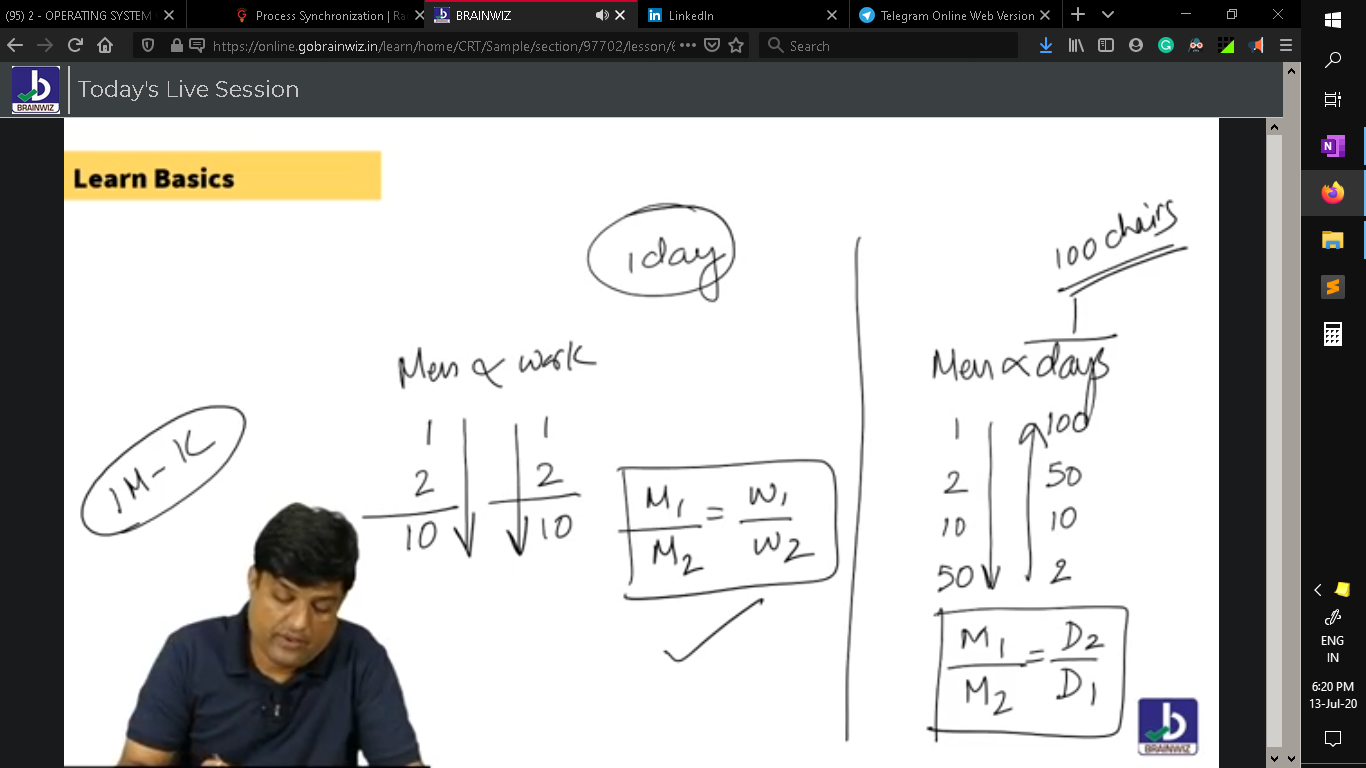 (95) 2 - OPERATING SYSTEM
Process Synchronization | Ra
BRAINWIZ
LinkedIn
Telegram Online Web Version
https://online.gobrainwiz.in/learn/home/CRT/Sample/section/97702/lesson/
Search
BRAINWIZ
Today's Live Session
Learn Basics
1 day
100 chairs
Men ∝ work
1 1
2 2
10 10
1M - 1C
M1/M2 = W1/W2
Men ∝ 1/days
1 100
2 50
10 10
50 2
M1/M2 = D2/D1
BRAINWIZ
ENG
IN
6:20 PM
13-Jul-20